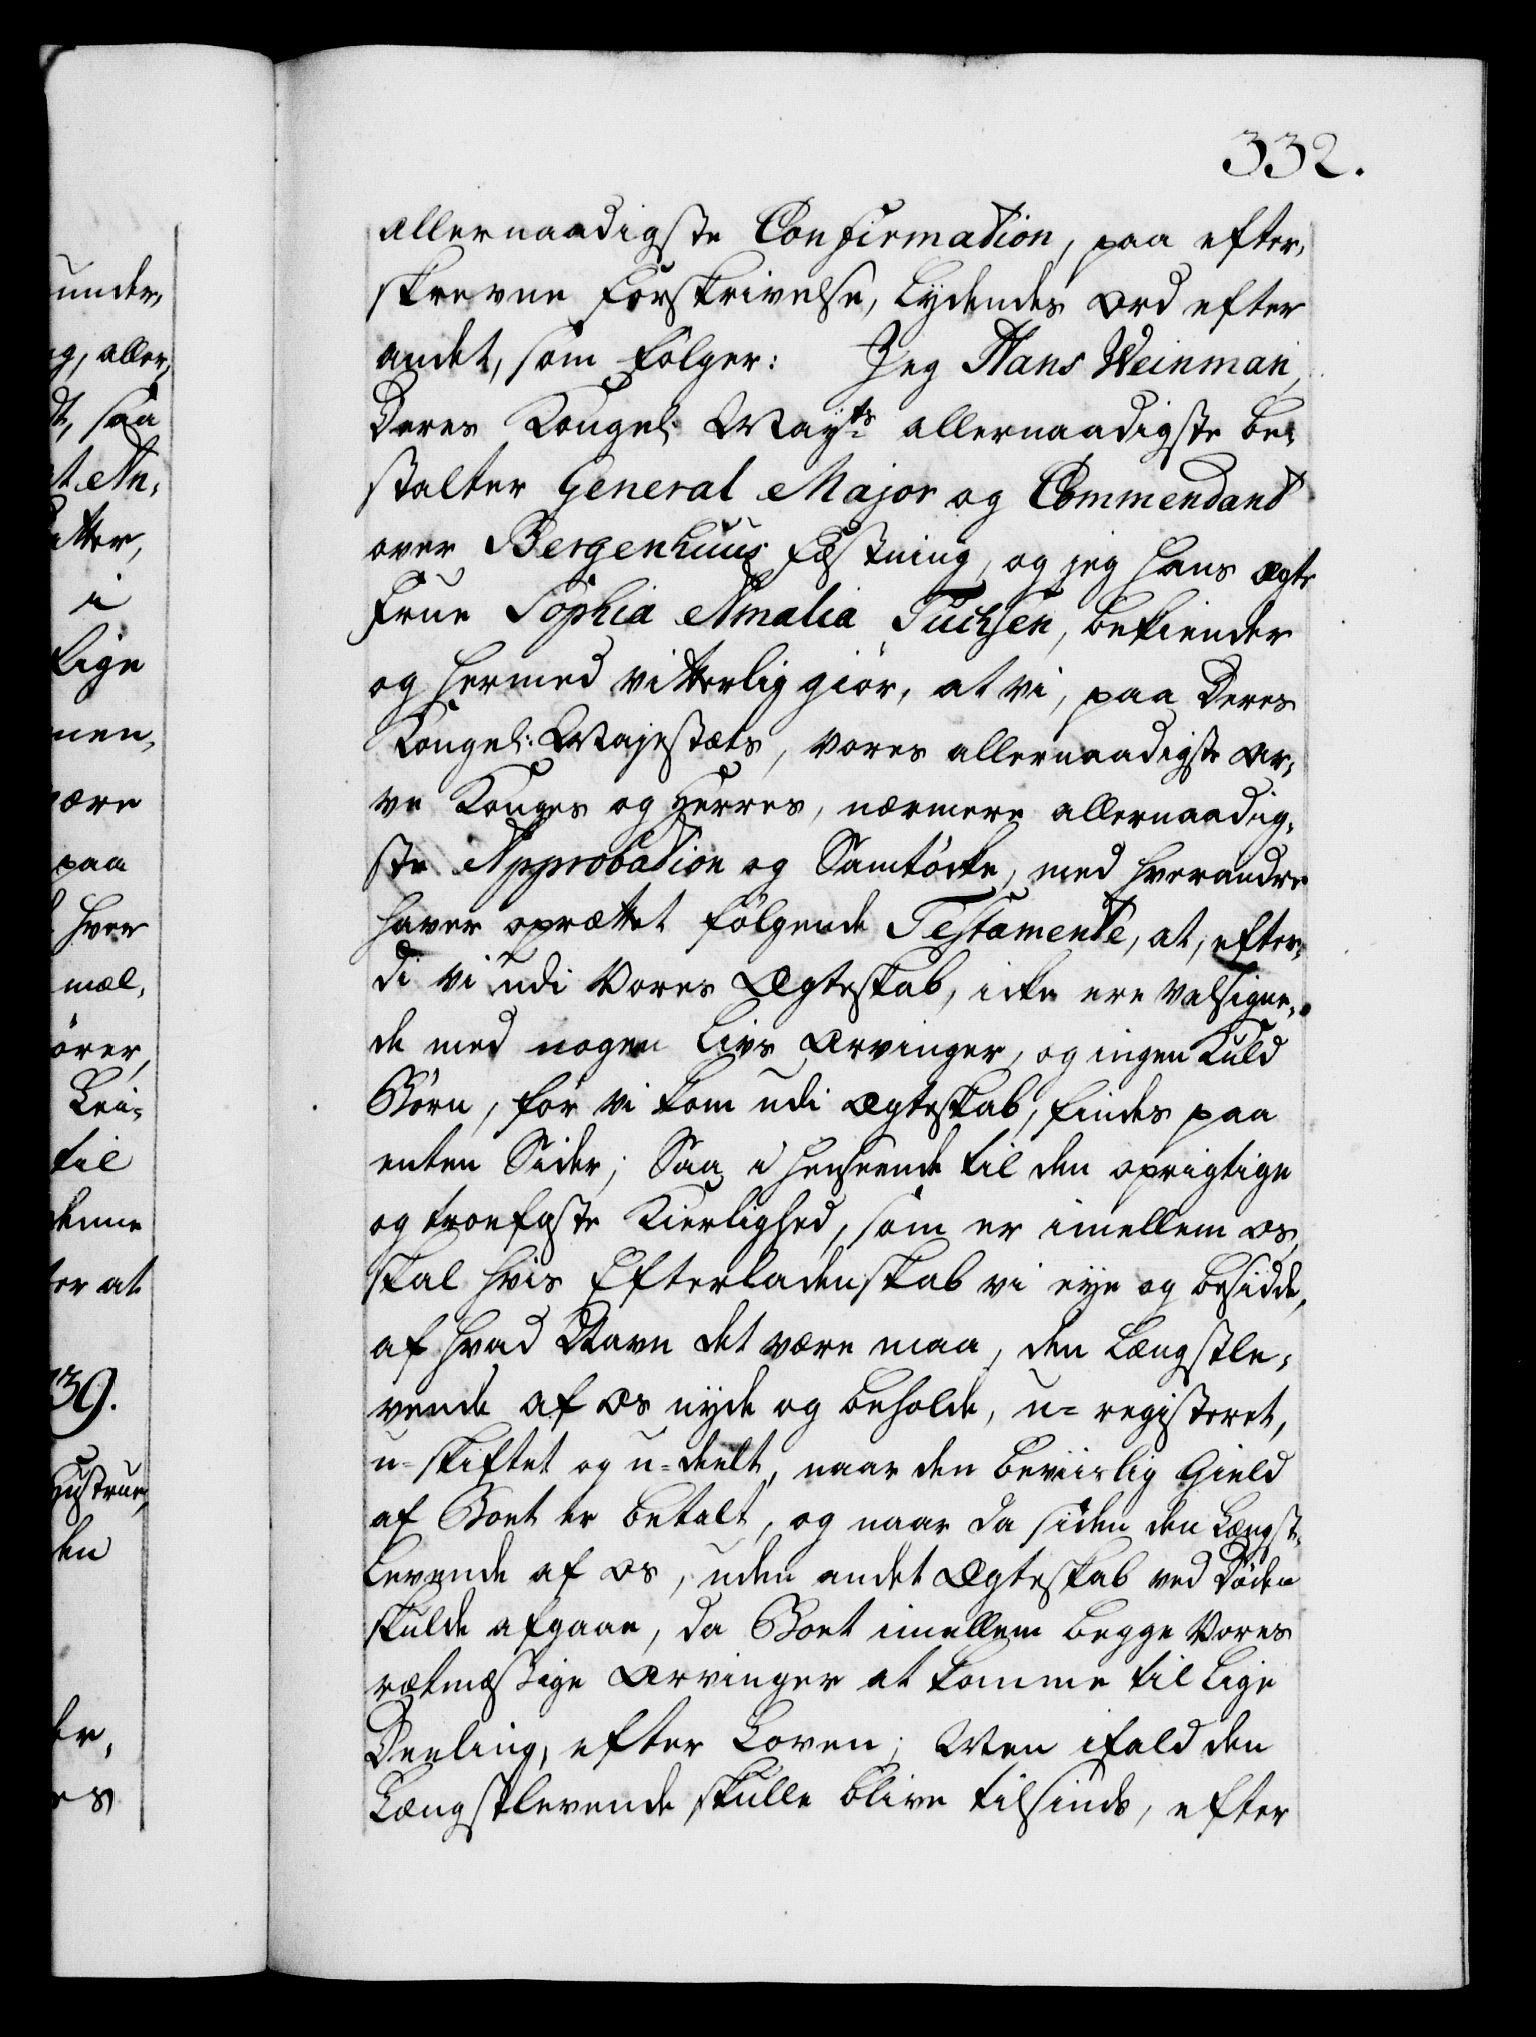 332.
allernaadigste Confirmation, paa efter,
skrevne Forskrivelse, Lydendes Ord efter
andet, som følger: Jeg Hans Weinman,
Deres Kongel: Mayts allernaadigste be,
stalter General Major og Commendant
over Bergenhuus Fæstning, og jeg hans ægte
Frue Sophia Amalia Tuchsen, bekiender
og hermed vitterlig giør, at vi, paa Deres
Kongel: Majestæts, vores allernaadigste Ar,
ve Konges og Herres, nærmere allernaadig,
ste Approbation og Samtøcke, med hverandre
haver oprættet følgende Testamente, at, efter,
di vi udi Vores Ægteskab, icke ere velsigne,
de med nogen Livs Arvinger, og ingen Kuld
Børn, før vi kom udi Ægteskab, findes paa
enten Sider; Saa i henseende til den oprigtige
og troefaste Kierlighed, som er imellem os,
skal hvis Efterladenskab vi eye og besidde,
af hvad Navn det være maa, den Længstle,
vende af os nyde og beholde, u=registeret,
u=skiftet og u=deelt, naar den beviislig Gield
af Boet er betalt, og naar da siden den Længst,
levende af os, uden andet Ægteskab ved Døden
skulde afgaae, da Boet imellem begge Vores
rætmæssige Arvinger at komme til lige
Deeling, efter Loven; Men ifald den
Længstlevende skulle blive tilsinds, efter
under,
g, aller,
t, saa
t An,
atter,
i
lige
men,
være
paa
hver
mæl,
ører,
til
denne
for at
39.
Hustrue,
den
er,
es